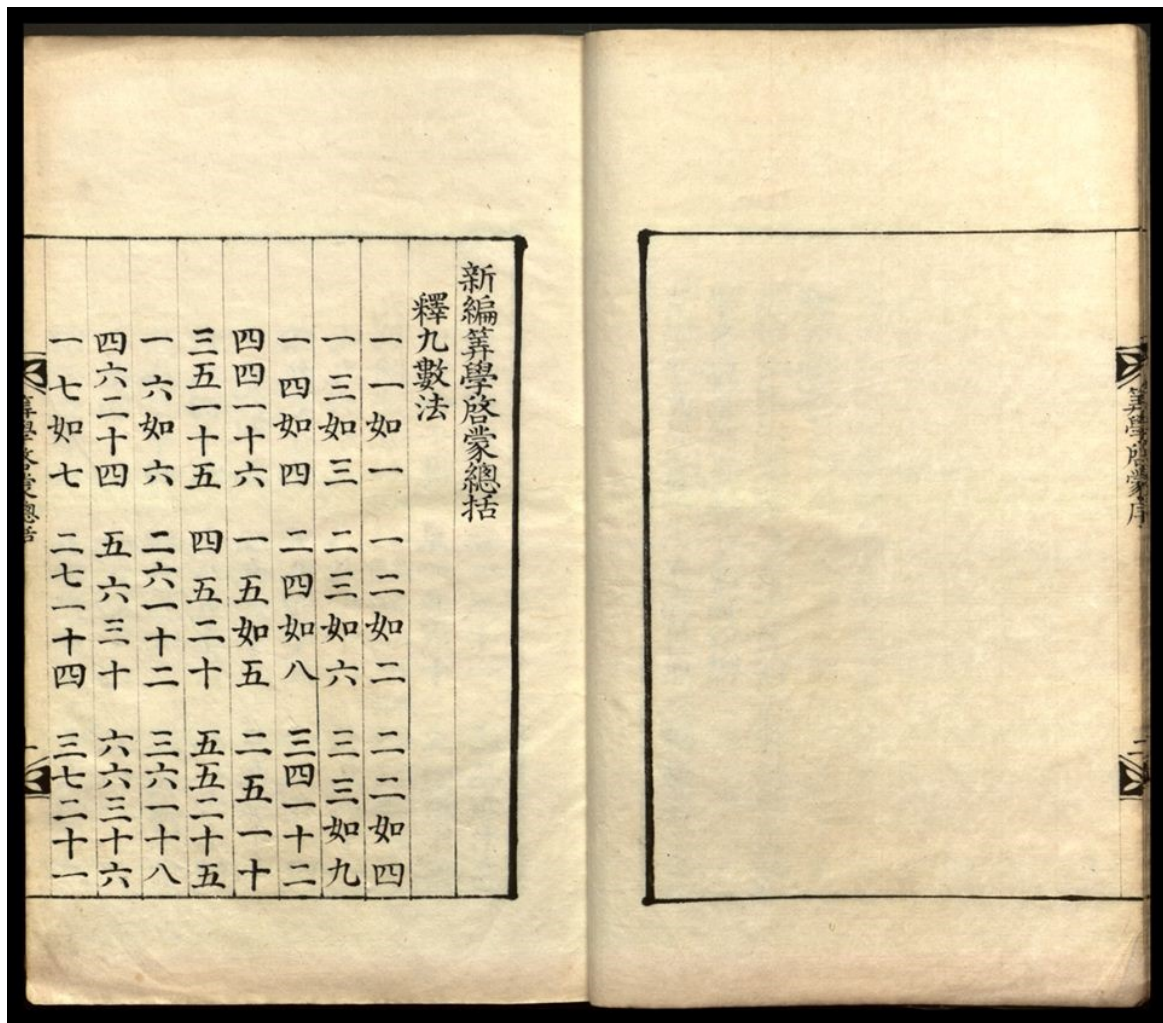 算學啓蒙序
二
新編筭學啓蒙總括
釋九數法
一一如一 一二如二 二二如四
一三如三 二三如六 三三如九
一四如四 二四如八 三四一十二
四四一十六 一五如五 二五一十
三五一十五 四五二十 五五二十五
一六如六 二六一十二 三六一十八
四六二十四 五六三十 六六三十六
一七如七 二七一十四 三七二十一
筭學啓蒙總括